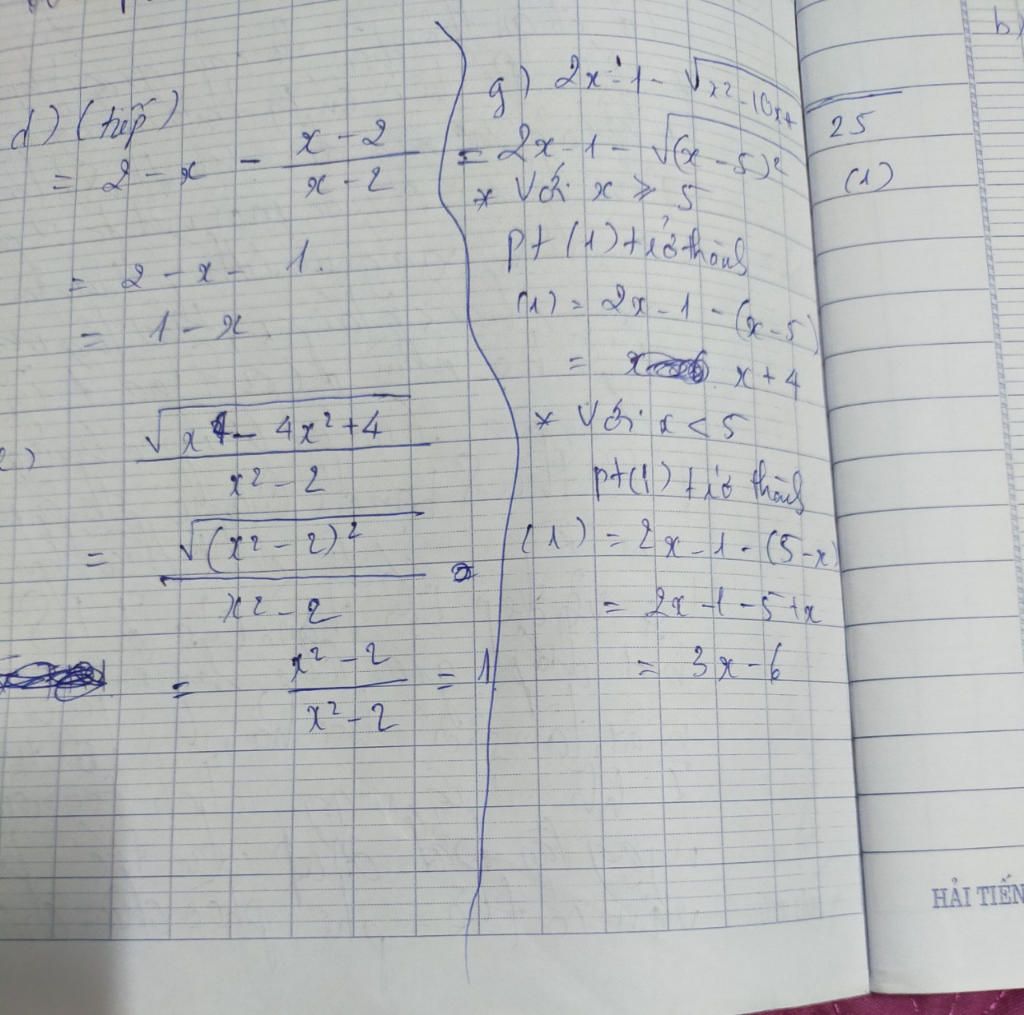 d) (tiếp)
= 2 - x - \frac{x-2}{x-2}
= 2 - x - 1.
= 1 - x
e) \frac{\sqrt{x^4 - 4x^2+4}}{x^2-2}
= \frac{\sqrt{(x^2-2)^2}}{x^2-2}
= \frac{x^2-2}{x^2-2} = 1
g) 2x - 1 - \sqrt{x^2-10x+25}
= 2x-1-\sqrt{(x-5)^2} (1)
* Với x ≥ 5
pt (1) trở thành
(1) = 2x - 1 - (x-5)
= x + 4
* Với x < 5
pt(1) trở thành
(1) = 2x - 1 - (5-x)
= 2x - 1 - 5 + x
= 3x - 6
HẢI TIẾN